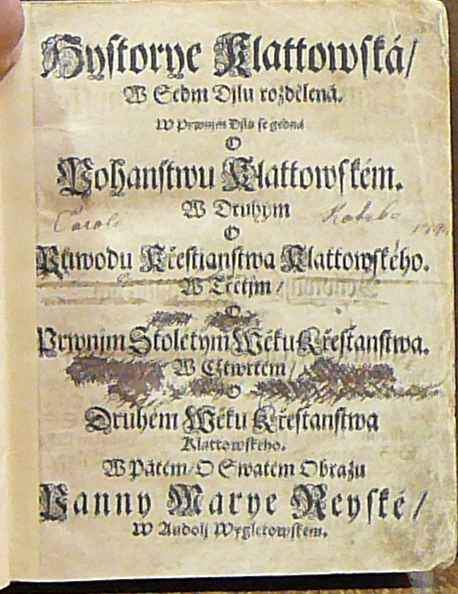 Hystorye Klattowská/
W Sedm Djlu rozdělená.
W Prwnjm Djlu se gedná
O
Pohanstwu Klattowském.
W Druhým
O
Půwodu Křestianstwa Klattowského.
W Třetjm/
O
Prwnjm Stoletým Wěku Křesťanstwa.
W Cžtwrtém/
O
Druhém Wěku Křestanstwa
Klattowského.
W Pátém/ O Swatém Obrazu
Panny Marye Reyské/
W Audolj Wygletowském.